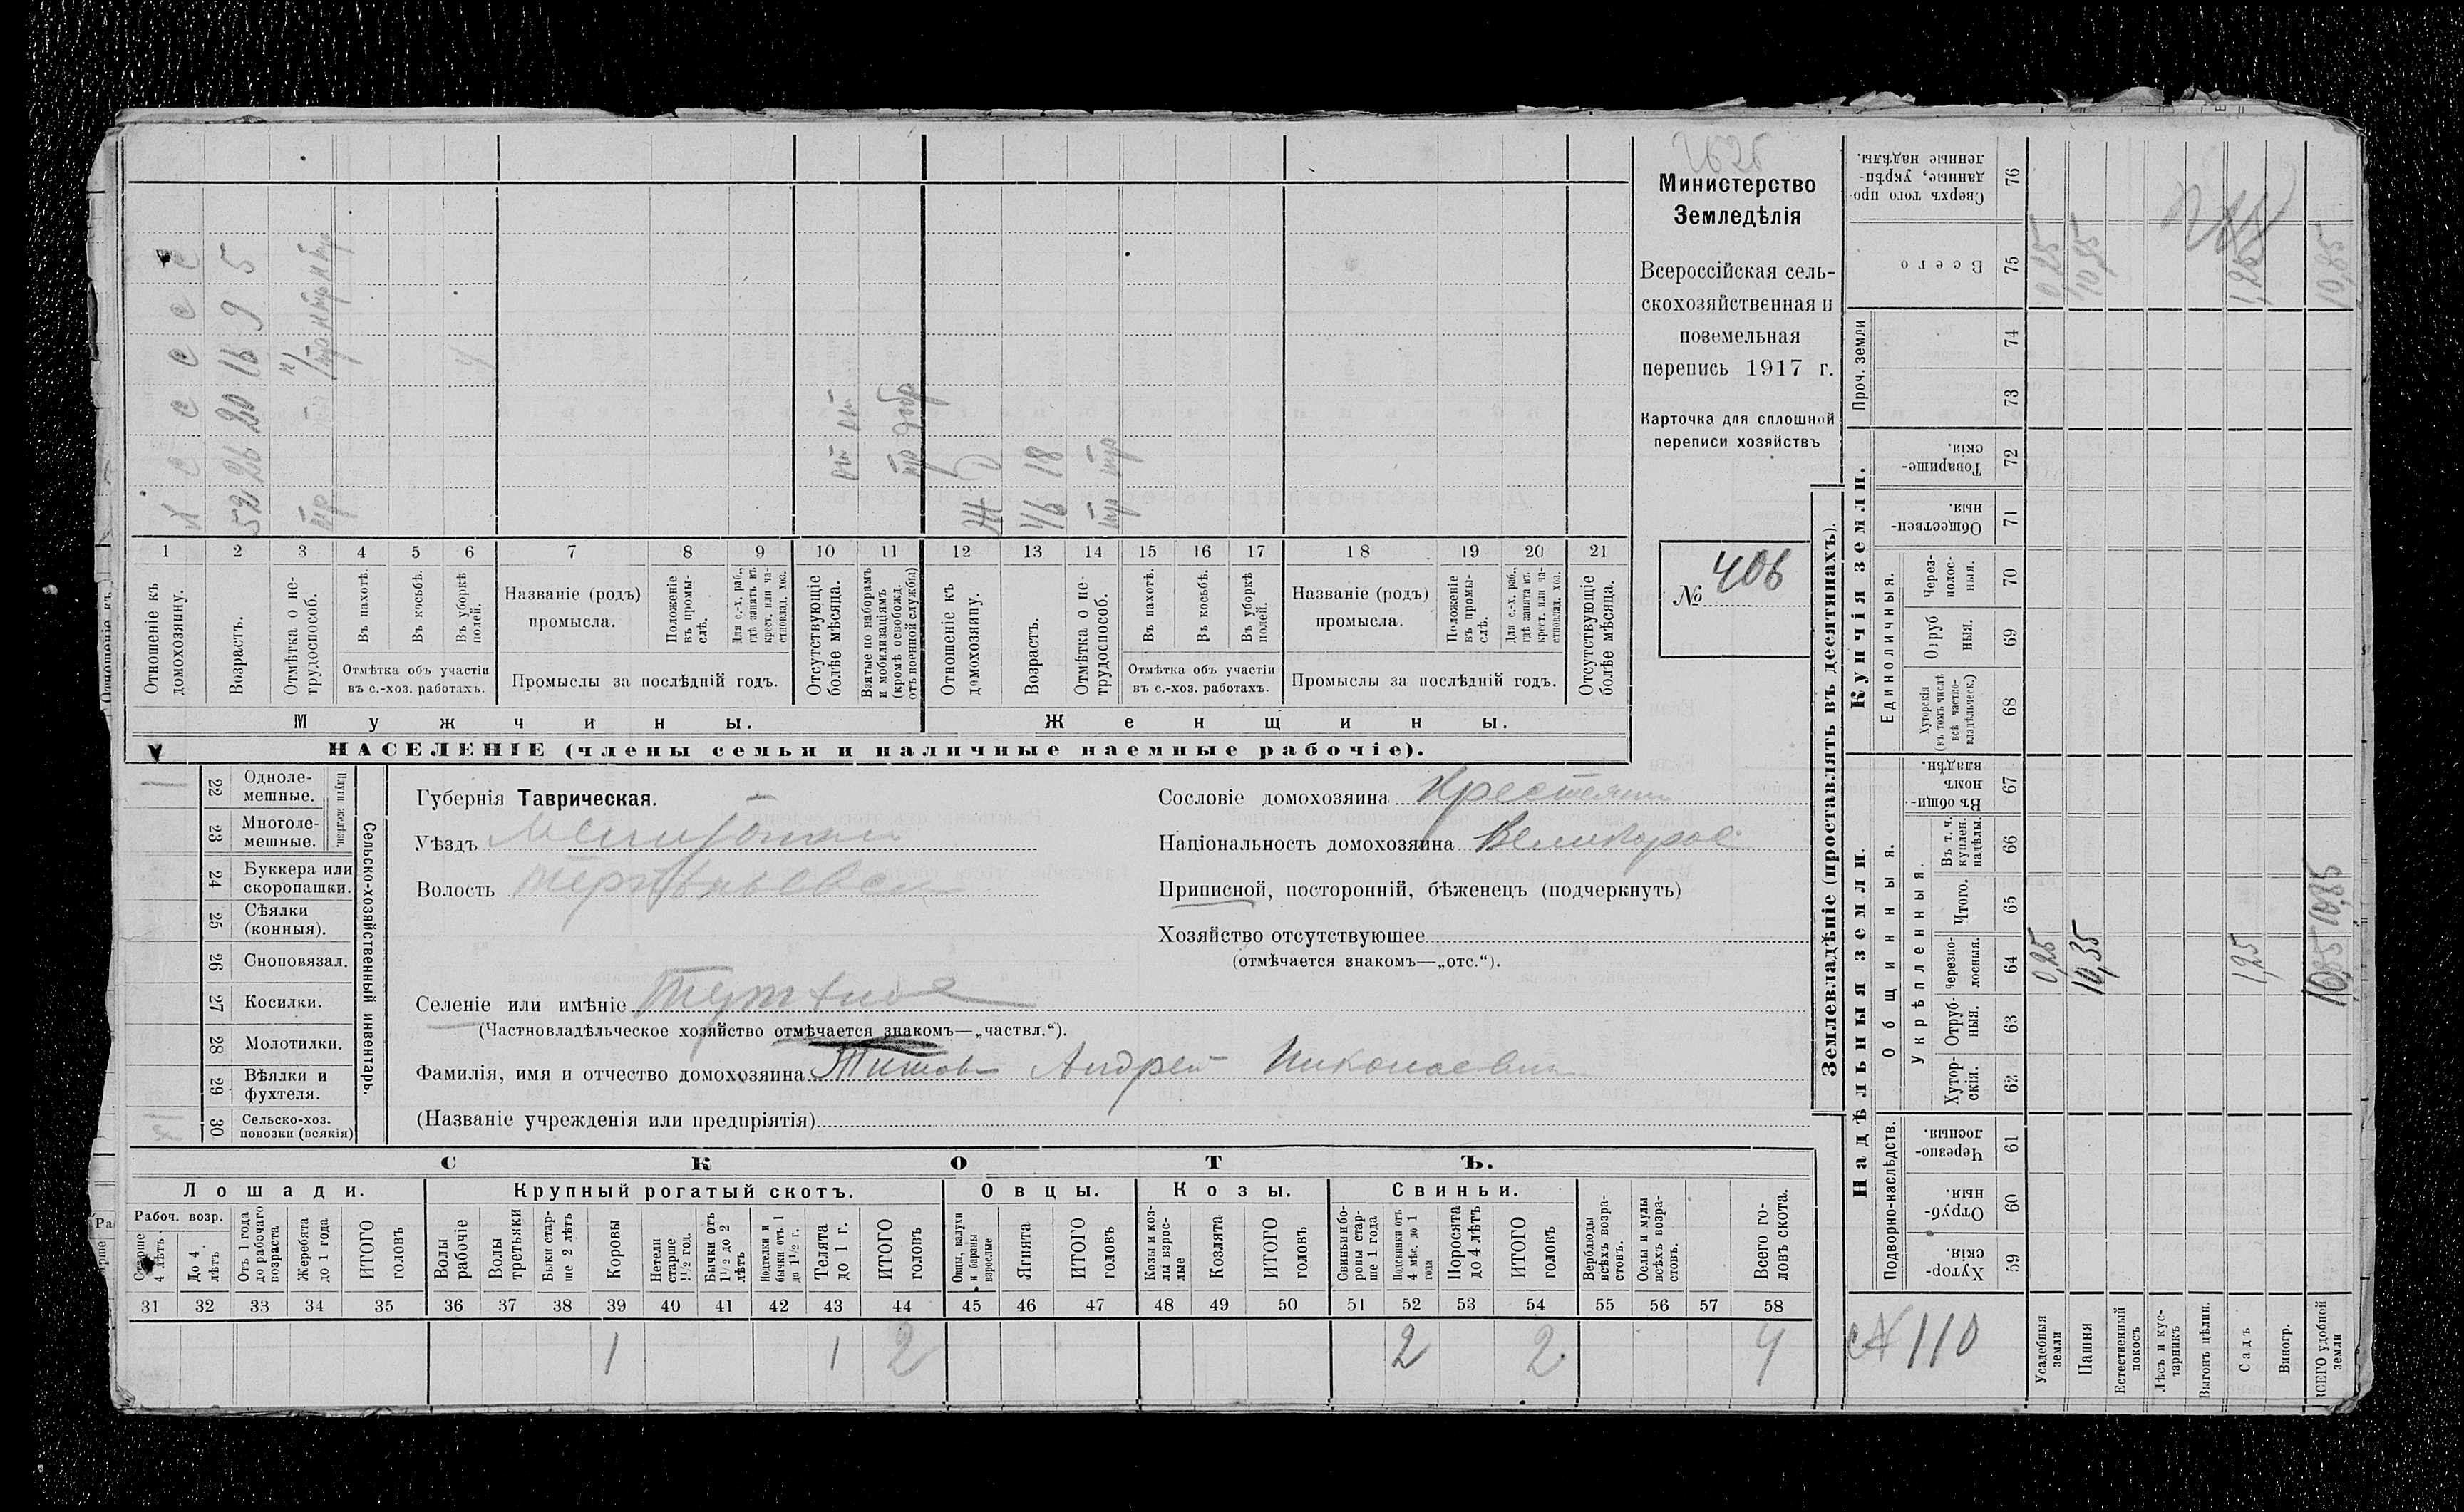 2626
Министерство
Земледѣлія
Всероссійская сель-
скохозяйственная и
поземельная
перепись 1917 г.
Карточка для сплошной
переписи хозяйствъ
№ 406
х с с с с с
52 26 20 16 9 5
46 18
1 2 3 4 5 6 7 8 9 10 11 12 13 14 15 16 17 18 19 20 21
Отношеніе къ
домохозяину.
Возрастъ.
Отмѣтка о не-
трудоспособ.
Въ пахотѣ.
Въ косьбѣ.
Въ уборкѣ
полей.
Отмѣтка объ участіи
въ с.-хоз. работахъ.
Названіе (родъ)
промысла.
Положеніе
въ промы-
слѣ.
Для с.-х. раб.,
гдѣ занятъ въ
крест. или ча-
стновлад. хоз.
Промыслы за послѣдній годъ.
Отсутствующіе
болѣе мѣсяца.
Взятые по наборамъ
и мобилизаціямъ
(кромѣ освобожд.
отъ военной службы)
Отношеніе къ
домохозяину.
Возрастъ.
Отмѣтка о не-
трудоспособ.
Въ пахотѣ.
Въ косьбѣ.
Въ уборкѣ
полей.
Отмѣтка объ участіи
въ с.-хоз. работахъ.
Названіе (родъ)
промысла.
Положеніе
въ промы-
слѣ.
Для с.-х. раб.,
гдѣ занята въ
крест. или ча-
стновлад. хоз.
Промыслы за послѣдній годъ.
Отсутствующіе
болѣе мѣсяца.
Мужчины.
Женщины.
НАСЕЛЕНІЕ (члены семьи и наличные наемные рабочіе).
22 Одноле-
мешные.
23 Многоле-
мешные.
Плуги желѣзн.
24 Буккера или
скоропашки.
25 Сѣялки
(конныя).
26 Сноповязал.
27 Косилки.
28 Молотилки.
29 Вѣялки и
фухтеля.
30 Сельско-хоз.
повозки (всякія)
Сельско-хозяйственный инвентарь.
Губернія Таврическая.
Уѣздъ
Волость
Селеніе или имѣніе
(Частновладѣльческое хозяйство отмѣчается знакомъ—„частвл.“).
Фамилія, имя и отчество домохозяина Титовъ Андрей Николаевич
(Названіе учрежденія или предпріятія)
Сословіе домохозяина Крестянин
Національность домохозяина Великорос
Приписной, посторонній, бѣженецъ (подчеркнуть)
Хозяйство отсутствующее
(отмѣчается знакомъ—„отс.“).
СКОТЪ.
Лошади.
Крупный рогатый скотъ.
Овцы.
Козы.
Свиньи.
Рабоч. возр.
Старше
4 лѣтъ.
До 4
лѣтъ
Отъ 1 года
до рабочаго
возраста
Жеребята
до 1 года
ИТОГО
головъ
Волы
рабочіе
Волы
третьяки
Быки стар-
ше 2 лѣтъ
Коровы
Нетели
старше
1½ год.
Бычки отъ
1½ до 2
лѣтъ
Подтелки и
бычки отъ 1
до 1½ г.
Телята
до 1 г.
ИТОГО
головъ
Овцы, валухи
и бараны
взрослые
Ягнята
ИТОГО
головъ
Козы и коз-
лы взрос-
лые
Козлята
ИТОГО
головъ
Свиньи и бо-
ровы стар-
ше 1 года
Подсвинки отъ
4 мѣс. до 1
года
Поросята
до 4 лѣтъ
ИТОГО
головъ
Верблюды
всѣхъ возра-
стовъ.
Ослы и мулы
всѣхъ возра-
стовъ.
Всего го-
ловъ скота.
31 32 33 34 35 36 37 38 39 40 41 42 43 44 45 46 47 48 49 50 51 52 53 54 55 56 57 58
1 1 2 2 2 4
Землевладѣніе (проставлять въ десятинахъ).
Купчія земли.
Надѣльныя земли.
Сверхъ того про-
данные, укрѣп-
ленные надѣлы.
76
Всего
75
Проч. земли
74
73
Товарище-
скія.
72
Обществен-
ныя.
71
Единоличныя.
Через-
полос-
ныя.
70
Отруб
ныя.
69
Хуторскія
(въ томъ числѣ
всѣ частно-
владѣльческ.)
68
Общинныя.
Въ общи-
номъ
владѣн.
67
Укрѣпленныя.
Въ т. ч.
куплен.
надѣлы.
66
Итого.
65
Черезпо-
лосныя.
64
Отруб-
ныя.
63
Хутор-
скія.
62
Подворно-наслѣдств.
Черезпо-
лосныя.
61
Отруб-
ныя.
60
Хутор-
скія.
59
110
Усадебныя
земли
Пашня
Естественный
покосъ
Лѣсъ и кус-
тарникъ
Выгонъ цѣлин.
Садъ
Виногр.
ВСЕГО удобной
земли
0,25
10,35
1,25
10,85
0,25
10,35
10,85